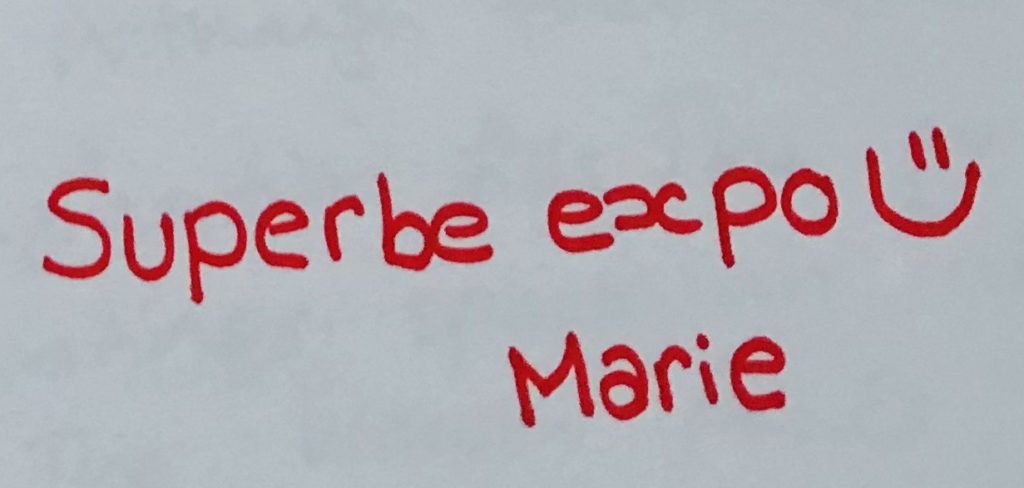 Superbe expo
Marie